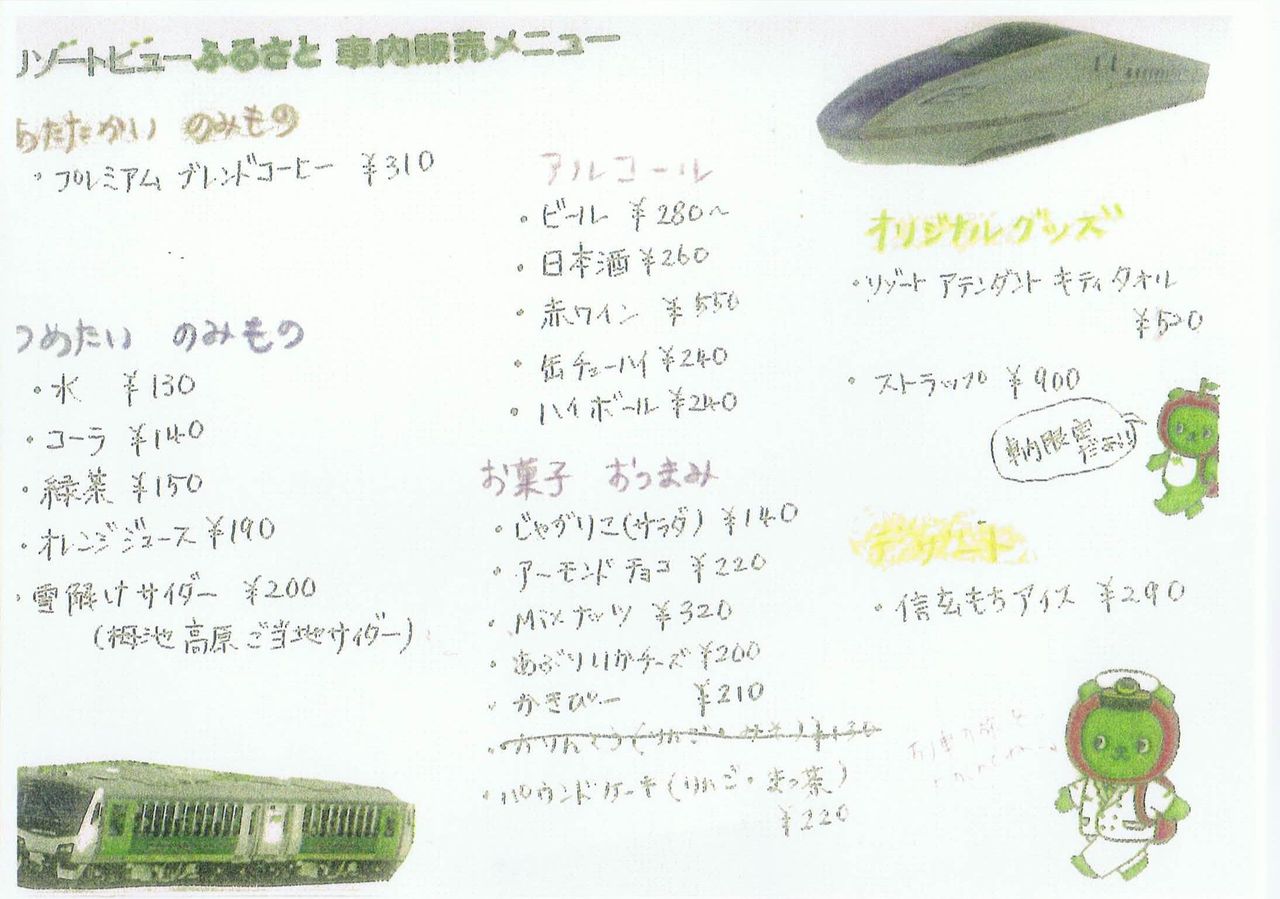 リゾートビューふるさと 車内販売メニュー
あたたかい のみもの
・プレミアム ブレンドコーヒー ¥310
つめたい のみもの
・水 ¥130
・コーラ ¥140
・緑茶 ¥150
・オレンジジュース ¥190
・雪解けサイダー ¥200
(栂池高原ご当地サイダー)
アルコール
・ビール ¥280～
・日本酒 ¥260
・赤ワイン ¥550
・缶チューハイ ¥240
・ハイボール ¥240
お菓子 おつまみ
・じゃがりこ(サラダ) ¥140
・アーモンドチョコ ¥220
・Mixナッツ ¥320
・あぶりいかチーズ ¥200
・かきぴー ¥210
・かりんとう(りんご・ ¥130
・パウンドケーキ(りんご・まっ茶)
¥220
オリジナルグッズ
・リゾート アテンダント キティ タオル
¥520
・ストラップ ¥900
車内限定だよ!!
デザート
・信玄もちアイス ¥290
列車の旅を